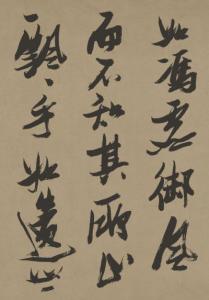 如馮虛御風
而不知其所止
飄々乎如遺世